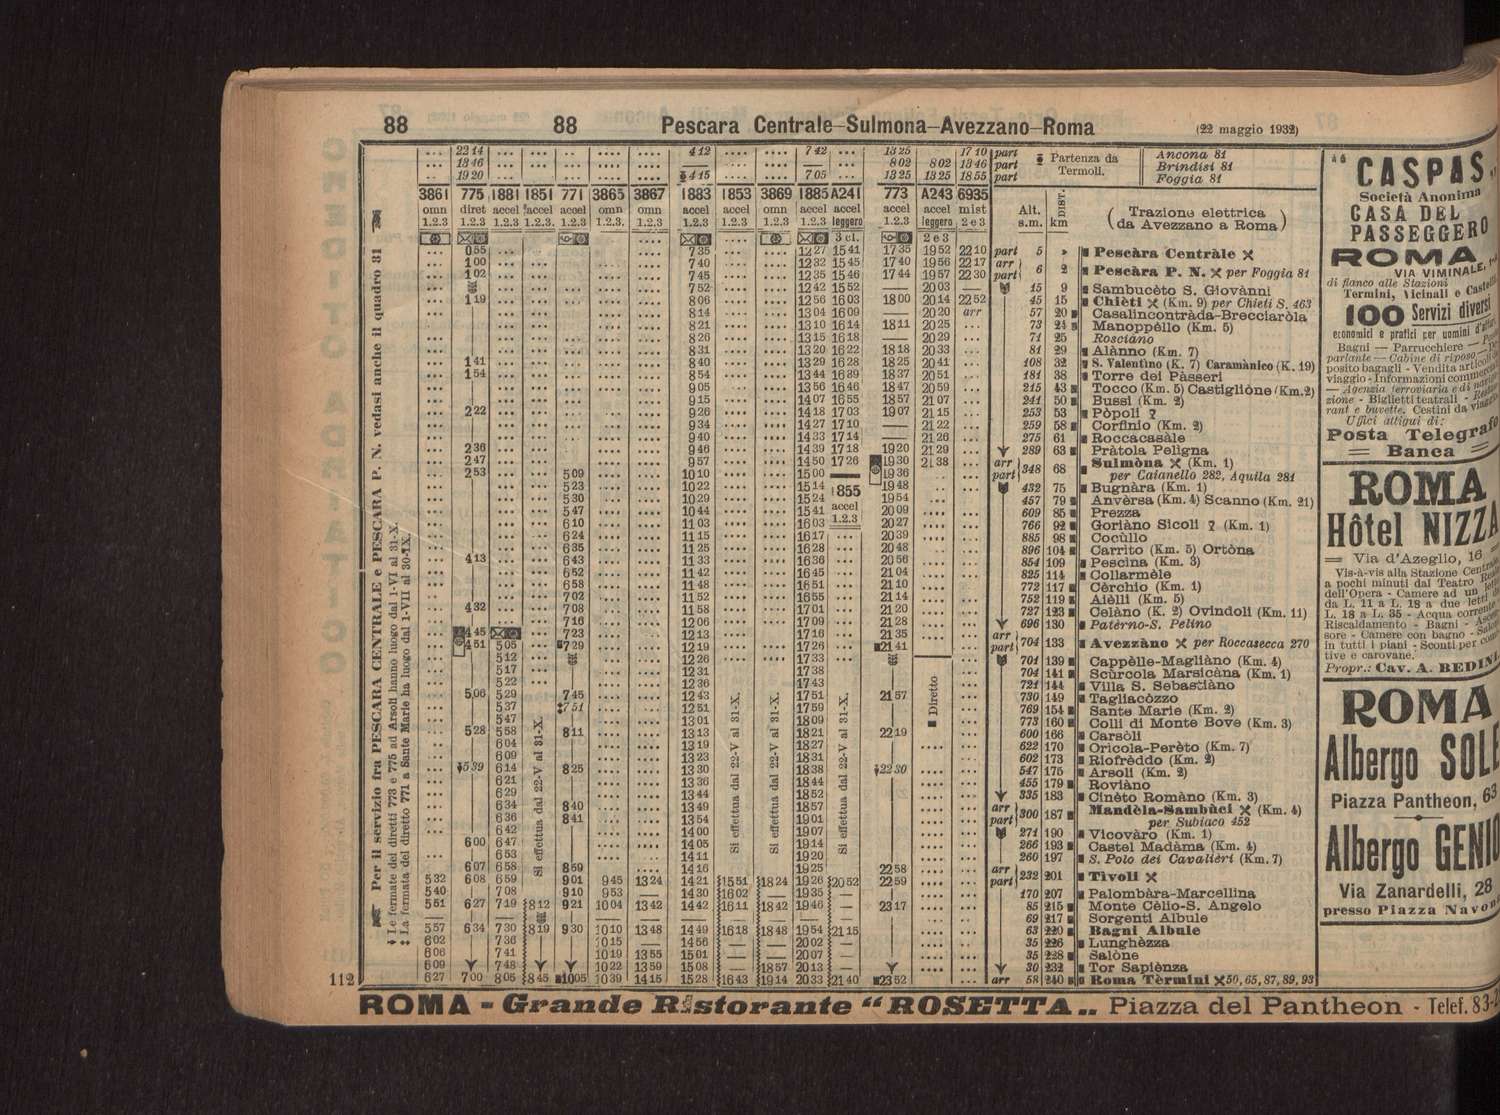 88 88 Pescara Centrale–Sulmona–Avezzano–Roma (22 maggio 1932)
... 22 14 ... ... .. ... .... 4 12 .... .... 7 42 ... 13 25 17 10 part
... 13 46 ... ... .. ... .... — .... .... — ... 8 02 8 02 13 46 part
... 19 20 ... ... .. ... .... 4 15 .... .... 7 05 ... 13 25 13 25 18 55 part
Partenza da Termoli.
Ancona 81
Brindisi 81
Foggia 81
3861 775 1881 1851 771 3865 3867 1883 1853 3869 1885 A241 773 A243 6935
omn diret accel accel accel omn omn accel accel omn accel accel accel accel mist
1.2.3 1.2.3 1.2.3 1.2.3. 1.2.3 1.2.3. 1.2.3 1.2.3 1.2.3 1.2.3 1.2.3 leggero 1.2.3 leggero 2 e 3
3 cl. 2 e 3
Alt. s.m. DIST. km
(Trazione elettrica da Avezzano a Roma)
0 55 7 35 12 27 15 41 17 35 19 52 22 10 part 5 » Pescàra Centràle
1 00 7 40 12 32 15 45 17 40 19 56 22 17 arr
1 02 7 45 12 35 15 46 17 44 19 57 22 30 part 6 2 Pescàra P. N. per Foggia 81
7 52 12 42 15 52 — 20 03 — 15 9 Sambucèto S. Giovànni
1 19 8 06 12 56 16 03 18 00 20 14 22 52 45 15 Chièti (Km. 9) per Chieti S. 463
8 14 13 04 16 09 — 20 20 arr 57 20 Casalincontràda-Brecciaròla
8 21 13 10 16 14 18 11 20 25 73 24 Manoppèllo (Km. 5)
8 26 13 15 16 18 — 20 29 71 25 Rosciano
8 31 13 20 16 22 18 18 20 33 81 29 Alànno (Km. 7)
1 41 8 40 13 29 16 28 18 25 20 41 108 32 S. Valentìno (K. 7) Caramànico (K. 19)
1 54 8 54 13 44 16 39 18 37 20 51 181 38 Torre dei Pàsseri
9 05 13 56 16 46 18 47 20 59 215 43 Tocco (Km. 5) Castiglione (Km.2)
9 15 14 07 16 55 18 57 21 07 241 50 Bussi (Km. 2)
2 22 9 26 14 18 17 03 19 07 21 15 253 53 Pòpoli
9 34 14 27 17 10 — 21 22 259 58 Corfinio (Km. 2)
9 40 14 33 17 14 — 21 26 275 61 Roccacasàle
2 36 9 46 14 39 17 18 19 20 21 29 289 63 Pràtola Peligna
2 47 9 57 14 50 17 26 19 30 21 38 arr Sulmòna (Km. 1)
2 53 5 09 10 10 15 00 19 36 part 348 68 per Caianello 282, Aquila 281
5 23 10 22 15 14 1855 19 48 432 75 Bugnàra (Km. 1)
5 30 10 29 15 24 accel 19 54 457 79 Anvèrsa (Km. 4) Scanno (Km. 21)
5 47 10 44 15 41 1.2.3 20 09 609 85 Prezza
6 10 11 03 16 03 20 27 766 92 Goriàno Sìcoli (Km. 1)
6 24 11 15 16 17 20 39 885 98 Cocùllo
6 35 11 25 16 28 20 48 896 104 Carrito (Km. 5) Ortòna
4 13 6 43 11 33 16 36 20 56 854 109 Pescina (Km. 3)
6 52 11 42 16 45 21 04 825 114 Collarmèle
6 58 11 48 16 51 21 10 772 117 Cèrchio (Km. 1)
7 02 11 52 16 55 21 14 752 119 Aièlli (Km. 5)
4 32 7 08 11 58 17 01 21 20 727 123 Celàno (K. 2) Ovindoli (Km. 11)
7 16 12 06 17 09 21 28 696 130 Patèrno-S. Pelino
4 45 7 23 12 13 17 16 21 35 arr
4 51 5 05 7 29 12 19 17 26 21 41 part 704 133 Avezzàno per Roccasecca 270
5 12 12 26 17 33 701 139 Cappèlle-Magliàno (Km. 4)
5 17 12 31 17 38 704 141 Scùrcola Marsicàna (Km. 1)
5 22 12 36 17 43 721 144 Villa S. Sebastiàno
5 06 5 29 7 45 12 43 17 51 21 57 730 149 Tagliacòzzo
5 37 7 51 12 51 17 59 769 154 Sante Marie (Km. 2)
5 47 13 01 18 09 773 160 Colli di Monte Bove (Km. 3)
5 28 5 58 8 11 13 13 18 21 22 19 600 166 Carsòli
6 04 13 19 18 27 622 170 Orìcola-Perèto (Km. 7)
6 09 13 23 18 31 602 173 Riofrèddo (Km. 2)
5 39 6 14 8 25 13 30 18 38 22 30 547 175 Arsoli (Km. 2)
6 21 13 36 18 44 455 179 Roviàno
6 29 13 44 18 52 335 183 Cinèto Romàno (Km. 3)
6 34 8 40 13 49 18 57 arr Mandèla-Sambùci (Km. 4)
6 36 8 41 13 54 19 01 part 300 187 per Subiaco 452
6 42 14 00 19 07 271 190 Vicovàro (Km. 1)
6 00 6 47 14 05 19 14 266 193 Castel Madàma (Km. 4)
6 53 14 11 19 20 260 197 S. Polo dei Cavalièri (Km. 7)
6 07 6 58 8 59 14 16 19 25 22 58 arr
5 32 6 08 6 59 9 01 9 45 13 24 14 21 15 51 18 24 19 26 20 52 22 59 part 232 201 Tivoli
5 40 7 08 9 10 9 53 14 30 16 02 — 19 35 — 170 207 Palombàra-Marcellina
5 51 6 27 7 19 8 12 9 21 10 04 13 42 14 42 16 11 18 42 19 46 — 23 17 85 215 Monte Cèlio-S. Angelo
— — — — — — — 69 217 Sorgenti Albule
5 57 6 34 7 30 8 19 9 30 10 10 13 48 14 49 16 18 18 48 19 54 21 15 63 220 Bagni Albule
6 02 7 36 10 15 — 14 56 — — 20 02 — 35 226 Lunghèzza
6 06 7 41 10 19 13 55 15 01 — — 20 07 — 35 228 Salòne
6 09 7 48 10 22 13 59 15 08 — 18 57 20 13 — 30 232 Tor Sapiènza
6 27 7 00 8 05 8 45 10 05 10 39 14 15 15 28 16 43 19 14 20 33 21 40 23 52 arr 58 240 Roma Tèrmini 50, 65, 87, 89, 93
Per il servizio fra PESCARA CENTRALE e PESCARA P. N. vedasi anche il quadro 81
Le fermate dei diretti 773 e 775 ad Arsoli hanno luogo dal 1-VI al 31-X.
La fermata del diretto 771 a Sante Marie ha luogo dal 1-VII al 30-IX.
Si effettua dal 22-V al 31-X.
Si effettua dal 22-V al 31-X.
Si effettua dal 22-V al 31-X.
Si effettua dal 22-V al 31-X.
Diretto
112
ROMA - Grande Ristorante "ROSETTA" Piazza del Pantheon - Telef. 83-2
CASPAS
Società Anonima
CASA DEL
PASSEGGERO
ROMA
VIA VIMINALE,
di fianco alle Stazioni
Termini, Vicinali e Castelli
100 Servizi diversi
economici e pratici per uomini d'affari
Bagni — Parrucchiere —
parlante — Cabine di riposo —
posito bagagli - Vendita articoli da
viaggio - Informazioni commerciali
— Agenzia ferroviaria e di
zione - Biglietti teatrali -
rant e buvette. Cestini da viaggio
Uffici attigui di:
Posta Telegrafo
Banca
ROMA
Hôtel NIZZA
Via d'Azeglio, 16
Vis-à-vis alla Stazione Centrale
a pochi minuti dal Teatro Reale
dell'Opera - Camere ad un letto
da L. 11 a L. 18 a due letti da
L. 18 a L. 35 - Acqua corrente
Riscaldamento - Bagni - Ascen
sore - Camere con bagno - Salone
in tutti i piani - Sconti per comi
tive e carovane.
Propr.: Cav. A. BEDINI
ROMA
Albergo SOLE
Piazza Pantheon, 63
Albergo GENIO
Via Zanardelli, 28
presso Piazza Navona